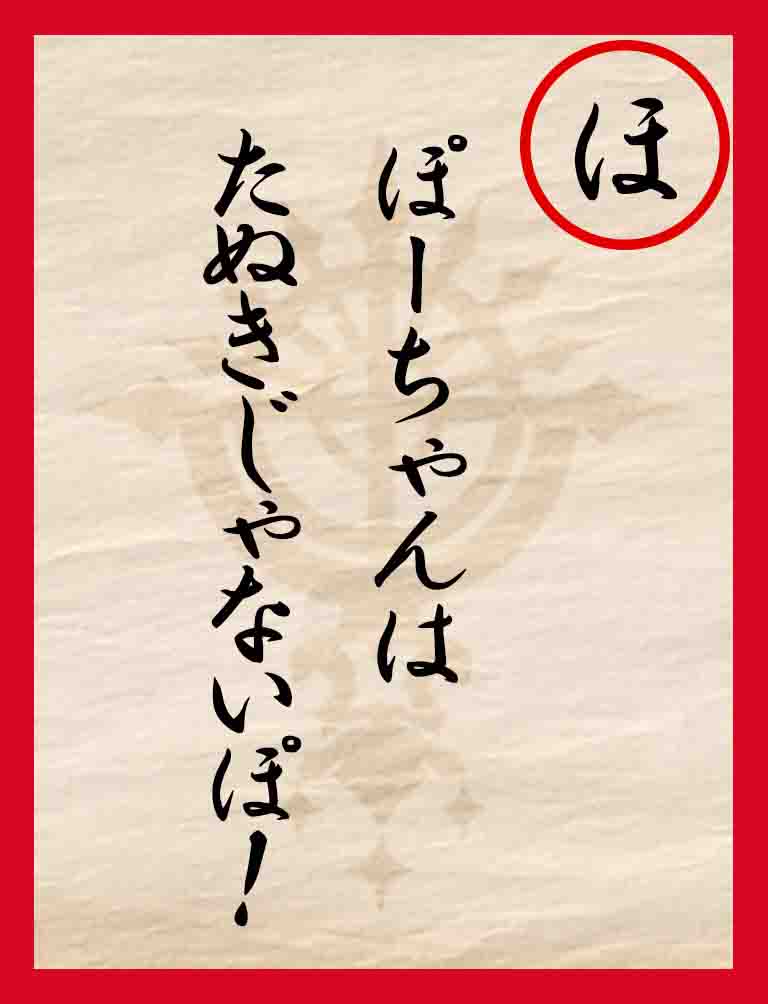 ほ
ぽーちゃんは
たぬきじゃないぽ！